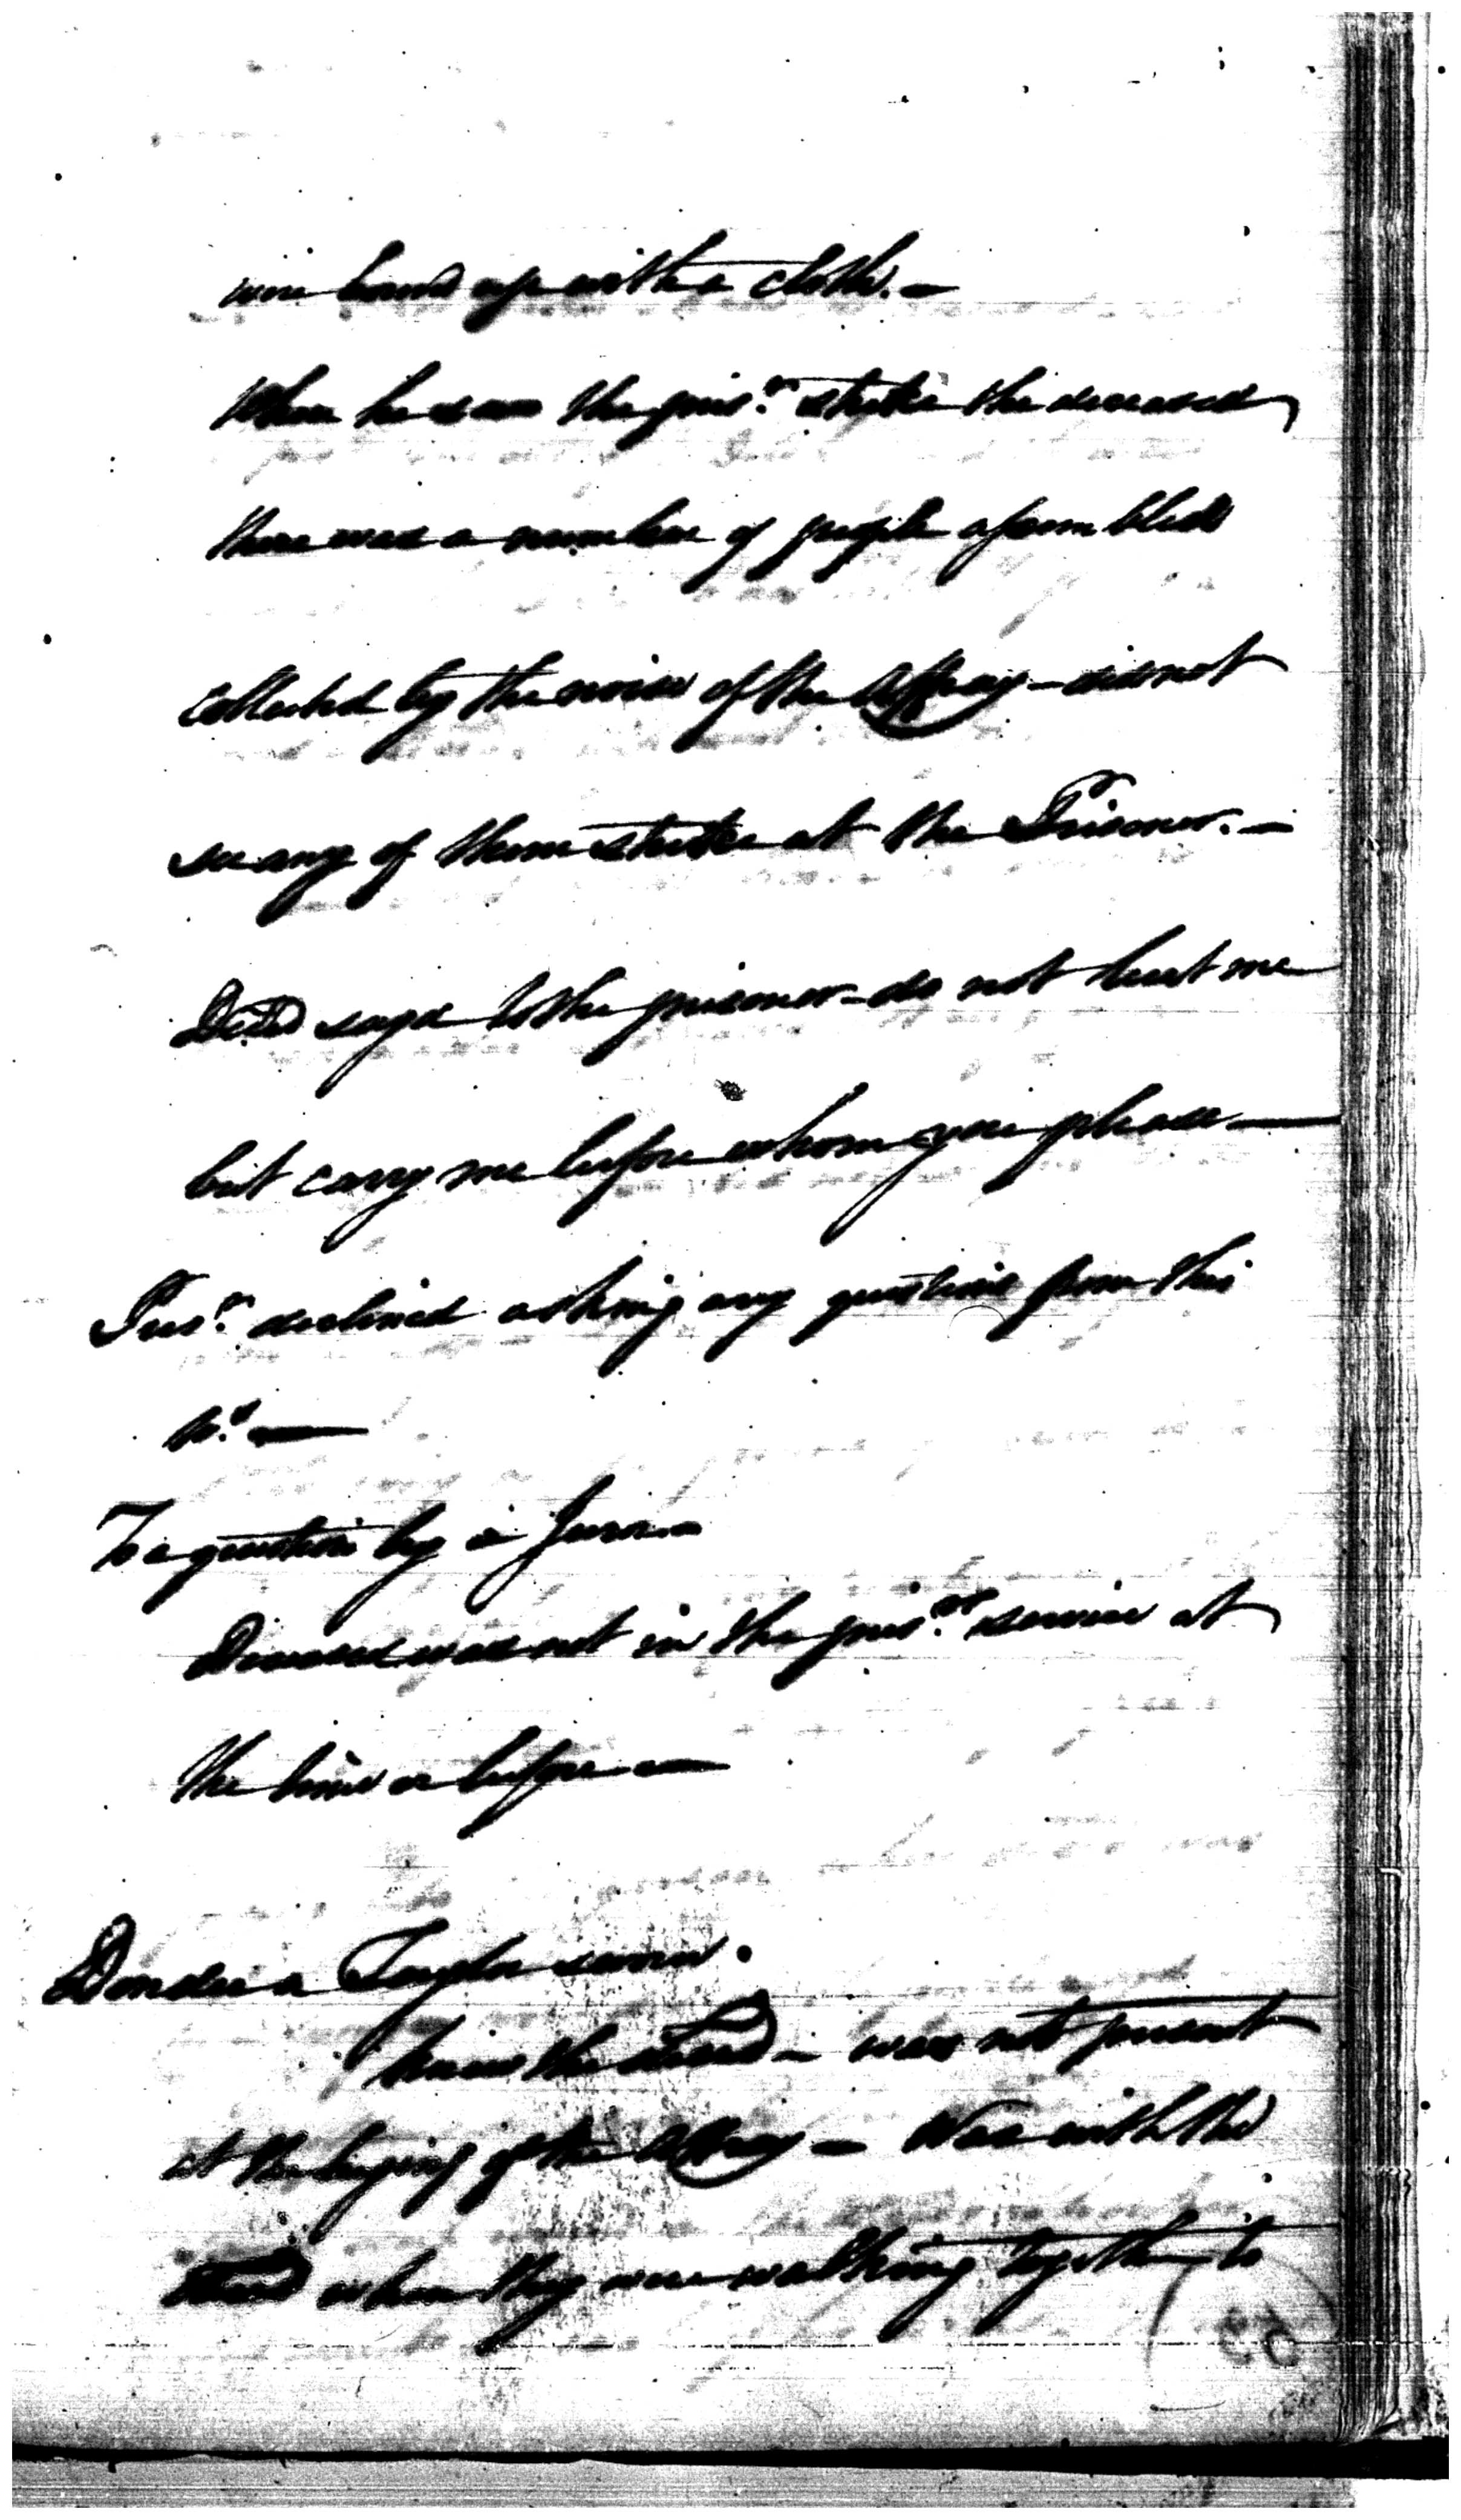 were bound up with a cloth. —
When he saw the pris.r strike the deceased
there was a number of people assembled
collected by the noise of the Affray — did not
see any of them strike at the Prisoner. —
Deced says to the prisoner — do not hurt me
but carry me before whom you please —
Pris.r declined asking any questions from this
W.s —
To a question by a Juror —
Deceased was not in the pris.rs service at
the time or before —
sworn.
knew the deced — was not present
at the begining of the Affray — Was with the
deced when they were walking together to